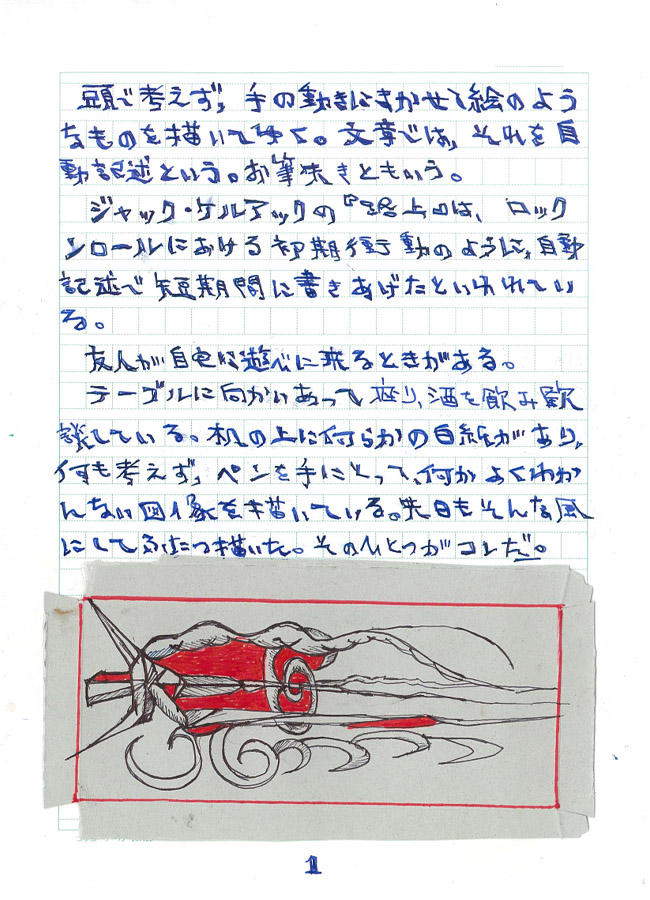 頭で考えず，手の動きにまかせて絵のよう
なものを描いてゆく。文章では，それを自
動記述という。お筆先きともいう。
ジャック・ケルアックの『路上』は、ロック
ンロールにおける初期衝動のように，自動
記述で短期間に書きあげたといわれてい
る。
友人が自宅に遊びに来るときがある。
テーブルに向かいあって座り，酒を飲み歓
談している。机の上に何らかの白紙があり，
何も考えず，ペンを手にとって，何かよくわか
んない図像を描いている。先日もそんな風
にしてふたつ描いた。そのひとつがコレだ。
1